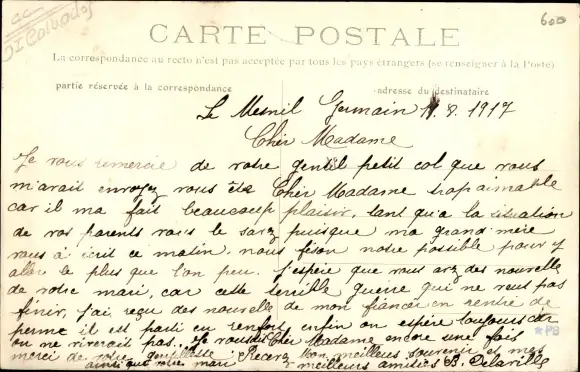 CC
DI Calvados
600
CARTE POSTALE
La correspondance au recto n'est pas acceptée par tous les pays étrangers (se renseigner à la Poste)
partie réservée à la correspondance
adresse du destinataire
Le Mesnil Germain 8. 1917
Chér Madame
Je vous remercie de votre gentil petit col que vous
m'avait envoyez vous êts Chér Madame trop aimable
car il ma fait beaucoup plaisir, tant qu'a la situation
de vos parents vous le savez puisque ma grand'mère
vous à ecrit ce matin. nous feson notre possible pour y
aller le plus que l'on peu. J'espère que vous avez des nouvelle
de votre mari, car cette terrible guerre qui ne veut pas
finir, j'ai reçu des nouvelle de mon fiancer en rentré de
perme il est parti en renfort enfin on espère toujours car
on ne vivrerait pas. Je vous dit Chér Madame encore une fois
merci de votre gentillesse Recevez bon meilleurs souvenir et mes
ainsi que votre mari meilleurs amitiés B. Delaville
*PB